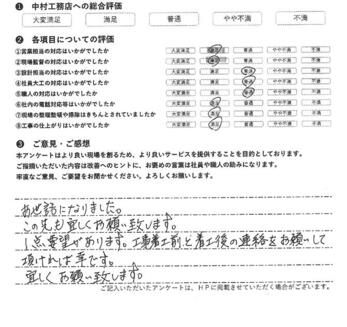 ❶ 中村工務店への総合評価
大変満足 満足 普通 やや不満 不満
❷ 各項目についての評価
①営業担当の対応はいかがでしたか 大変満足 満足 普通 やや不満 不満
②現場監督の対応はいかがでしたか 大変満足 普通 やや不満 不満
③設計担当の対応はいかがでしたか 大変満足 満足 普通 やや不満 不満
④社員大工の対応はいかがでしたか 大変満足 満足 普通 やや不満 不満
⑤職人の対応はいかがでしたか 大変満足 満足 普通 やや不満 不満
⑥社内の電話対応等はいかがでしたか 大変満足 満足 普通 やや不満 不満
⑦現場の整理整頓や掃除はきちんとされていましたか 大変満足 満足 普通 やや不満 不満
⑧工事の仕上がりはいかがでしたか 大変満足 満足 普通 やや不満 不満
❸ ご意見・ご感想
本アンケートはより良い現場を創るため、より良いサービスを提供することを目的としております。
ご指摘いただいた内容は改善へのヒントに、お褒めの言葉は社員や職人の励みになります。
率直なご意見、ご要望をお聞かせください。よろしくお願いします。
お世話になりました。
この先も宜しくお願い致します。
1点要望があります。工事着工前と着工後の連絡をお願いして
頂ければ幸です。
宜しくお願い致します。
ご記入いただいたアンケートは、HPに掲載させていただく場合がございます。